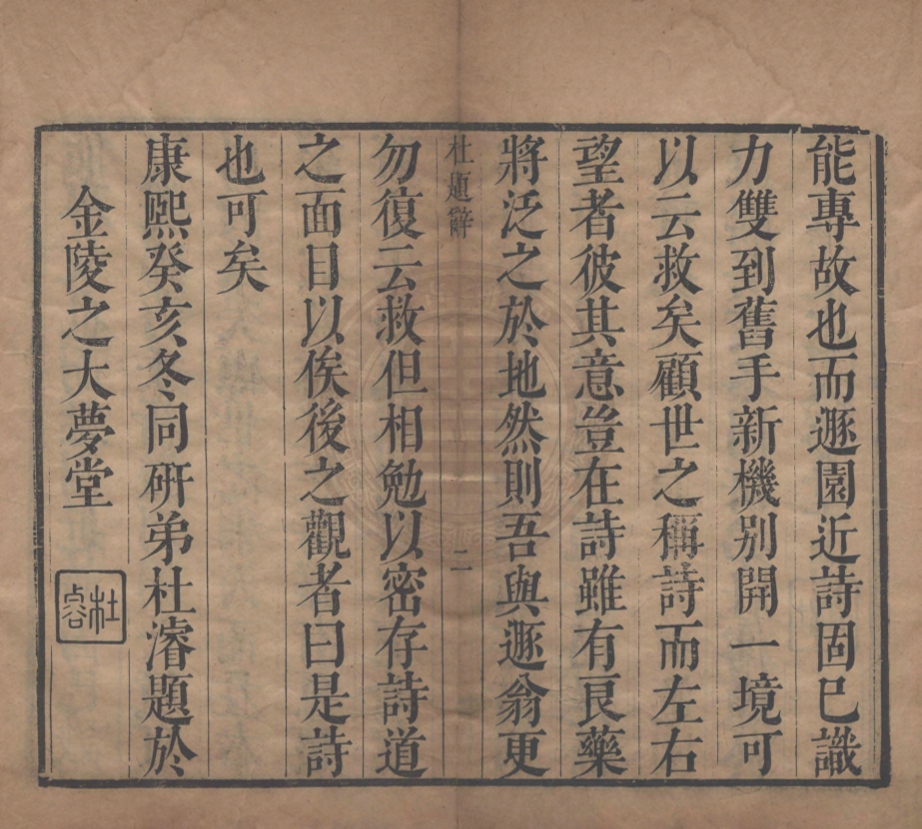 能專故也而遯園近詩固已識
力雙到舊手新機別開一境可
以云救矣顧世之稱詩而左右
望者彼其意豈在詩雖有良藥
將泛之於地然則吾與遯翁更
杜題辭 二
勿復云救但相勉以密存詩道
之面目以俟後之觀者曰是詩
也可矣
康熙癸亥冬同硏弟杜濬題於
金陵之大夢堂
杜濬